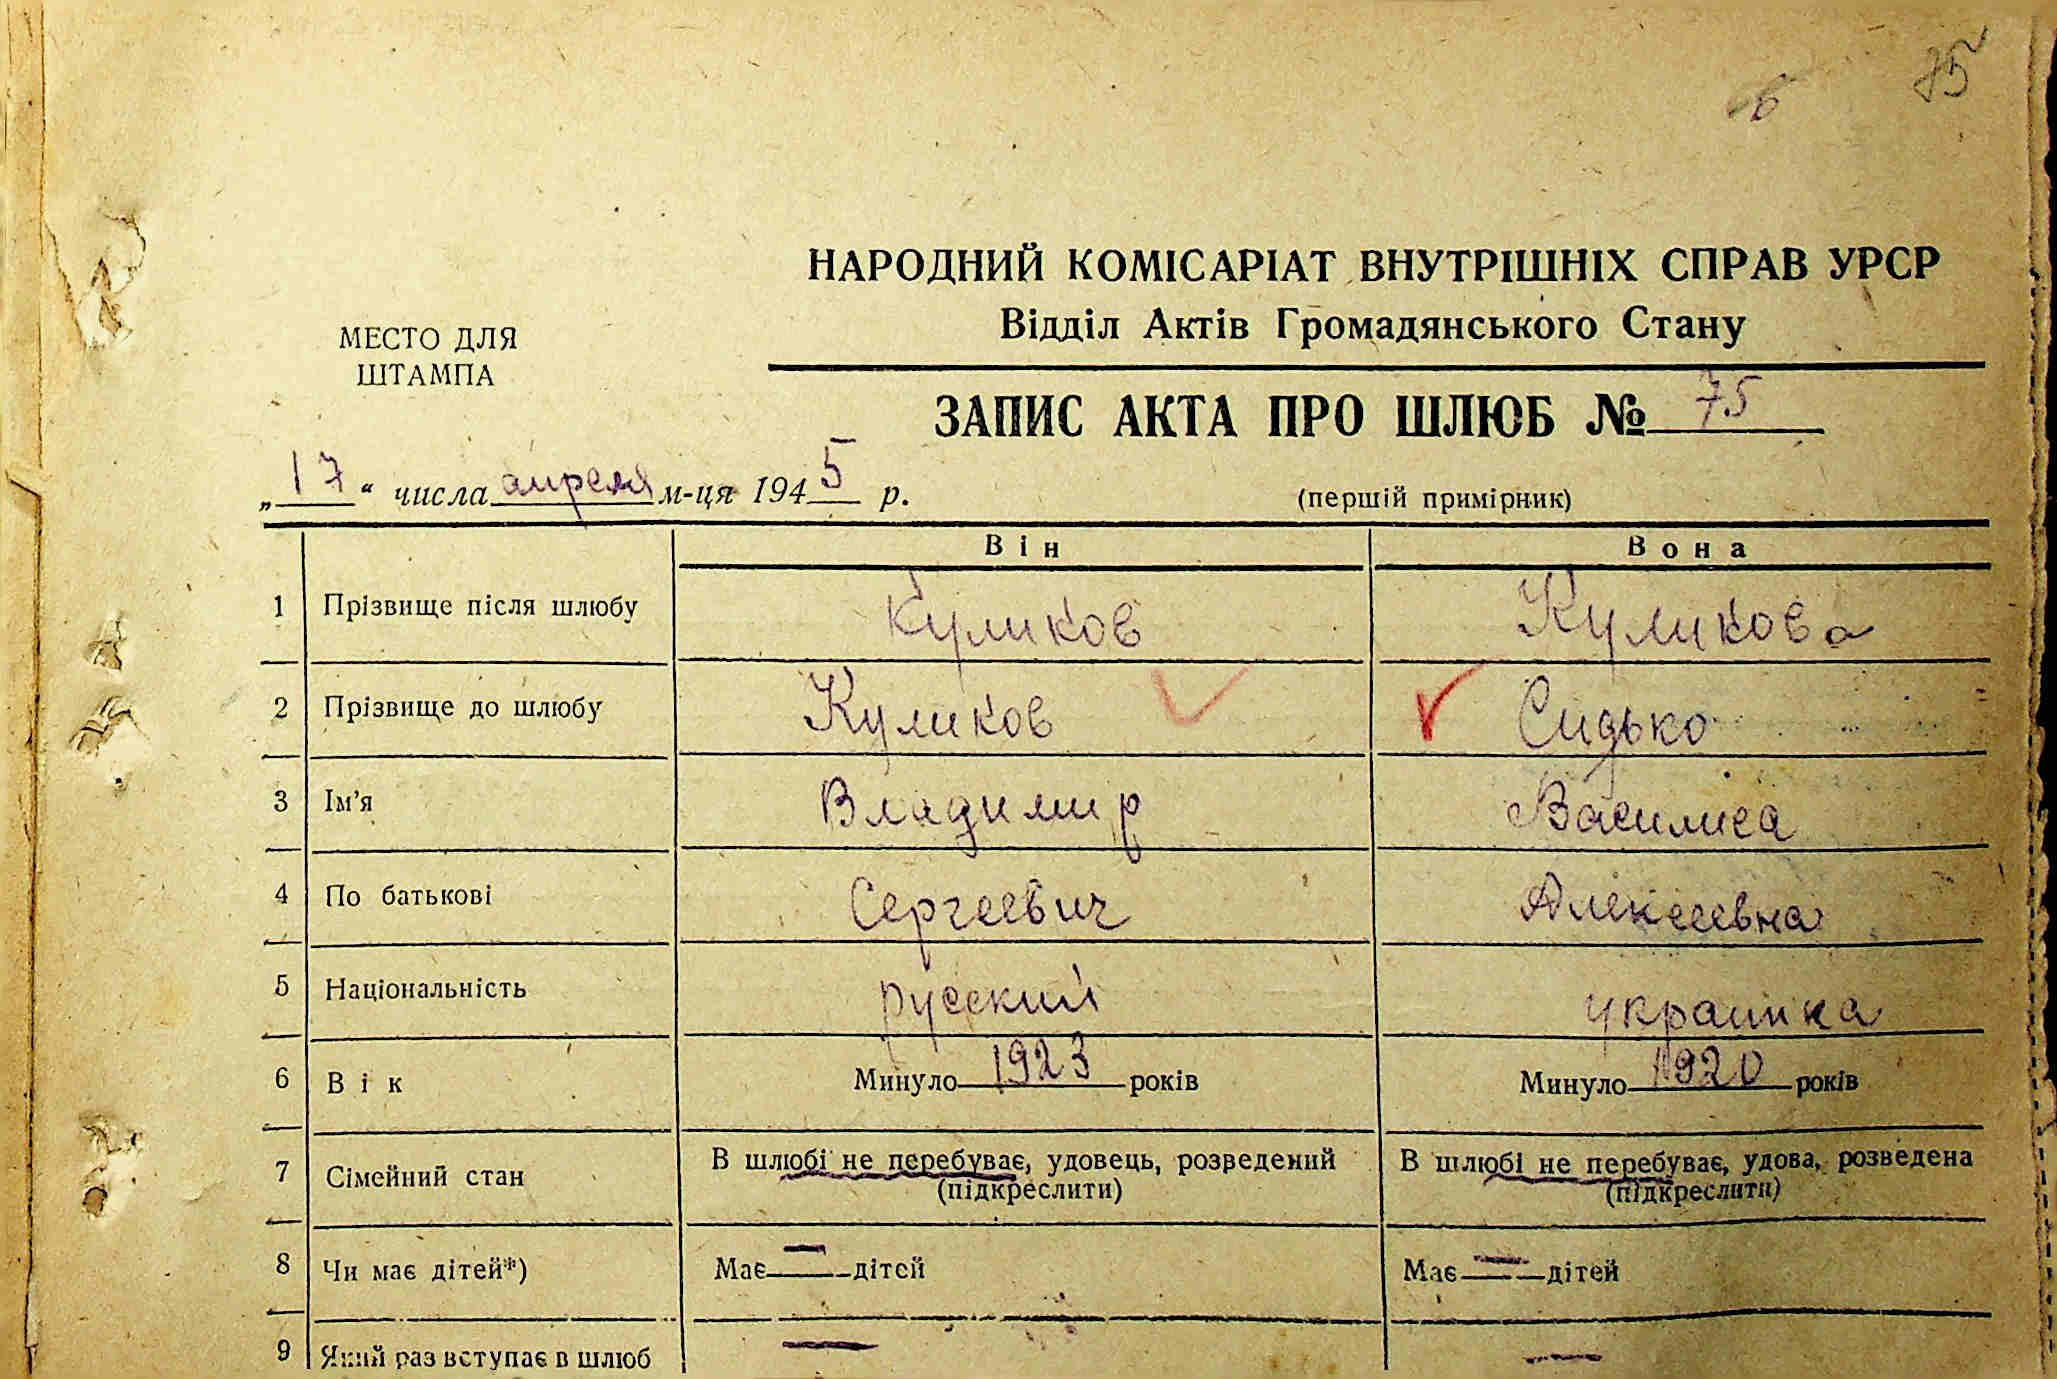 75
6
НАРОДНИЙ КОМІСАРІАТ ВНУТРІШНІХ СПРАВ УРСР
Відділ Актів Громадянського Стану
МЕСТО ДЛЯ
ШТАМПА
ЗАПИС АКТА ПРО ШЛЮБ № 75
„17“ числа апреля м-ця 1945 р.
(першій примірник)
Він Вона
1 Прізвище після шлюбу Куликов Куликова
2 Прізвище до шлюбу Куликов Сидько
3 Ім'я Владимир Василиса
4 По батькові Сергеевич Алексеевна
5 Національність русский украинка
6 Вік Минуло 1923 років Минуло 1920 років
7 Сімейний стан В шлюбі не перебуває, удовець, розведений В шлюбі не перебуває, удова, розведена
(підкреслити) (підкреслити)
8 Чи має дітей*) Має — дітей Має — дітей
9 Який раз вступає в шлюб — —